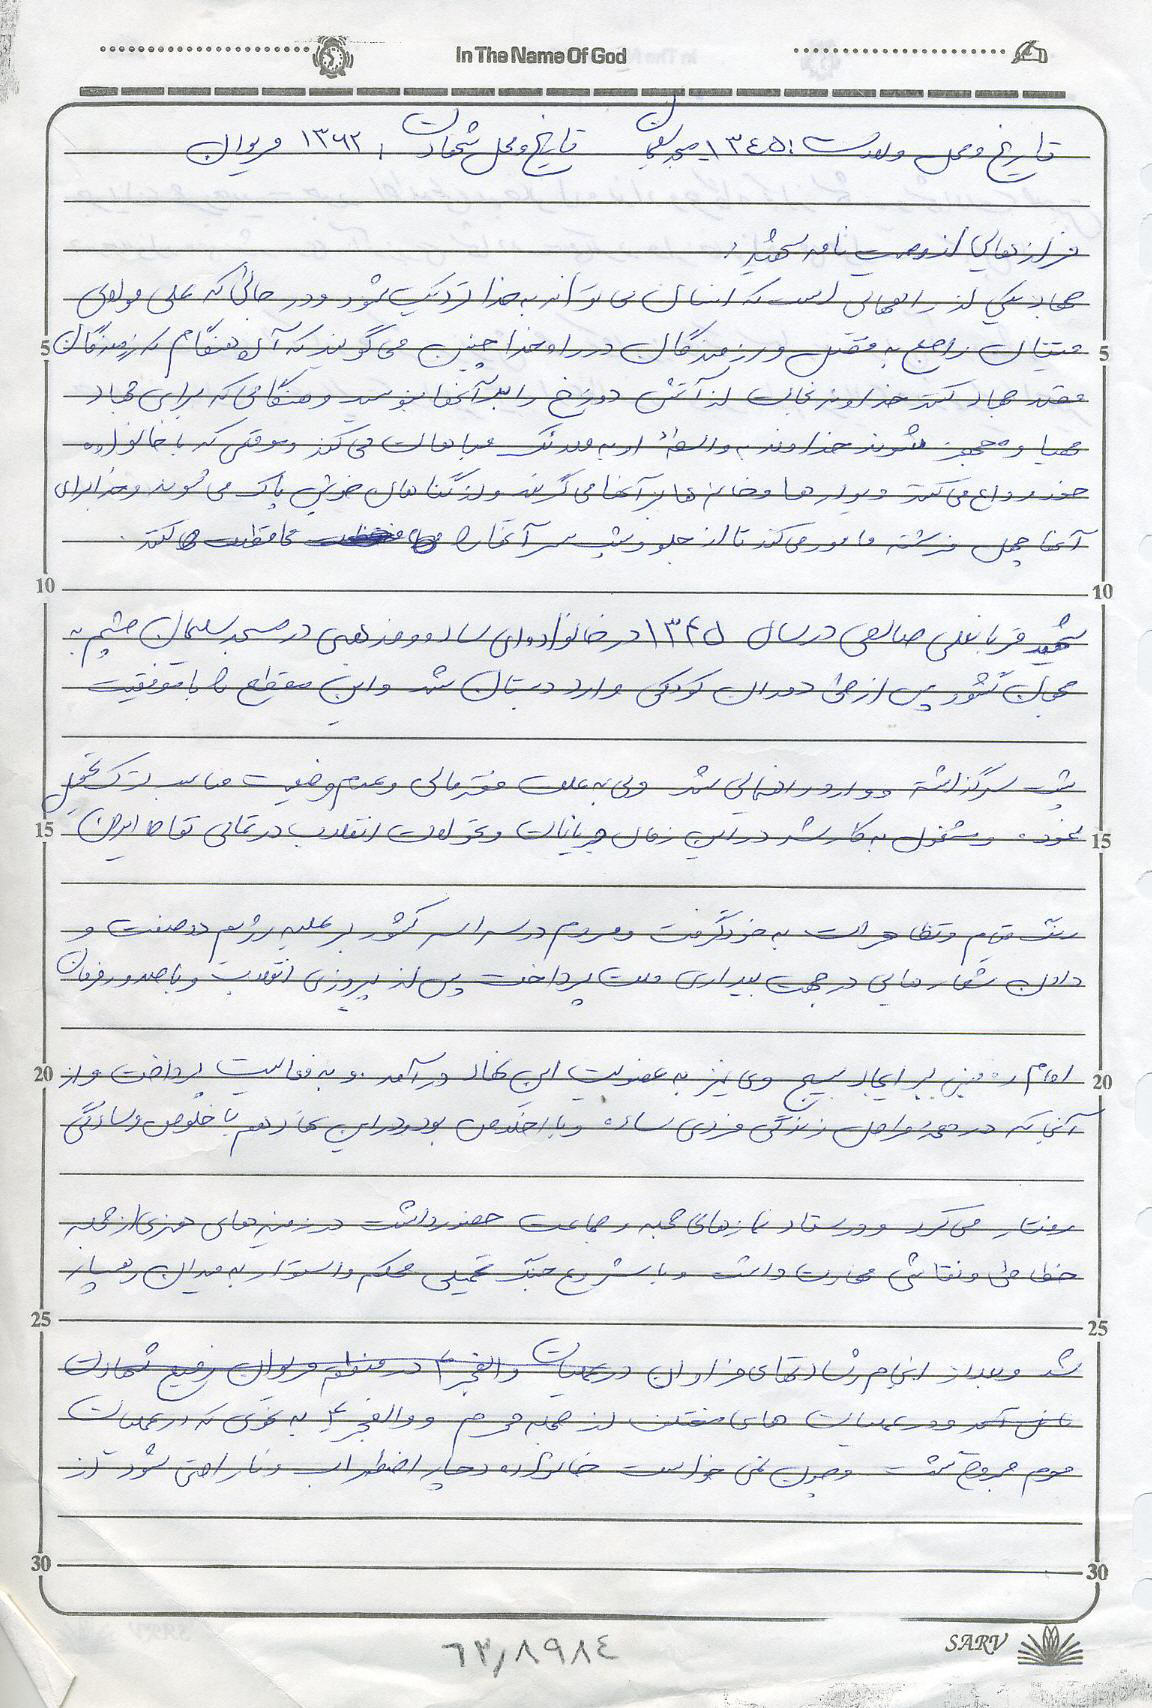 In The Name Of God
تاریخ و محل ولادت: ۱۳۴۵ مسجدسلیمان تاریخ و محل شهادت: ۱۳۶۲ مریوان
فرازهایی از وصیت نامه شهید:
جهاد یکی از راههایی است که انسان می تواند به خدا نزدیک شود و در حالی که علی مولای
5 متقیان راجع به مقتل و رزمندگان در راه خدا چنین می گویند که آن هنگام که رزمندگان 5
قصد جهاد کنند خداوند نجات از آتش دوزخ را بر آنها بنویسد و هنگامی که برای جهاد
مهیا و مجهز شوند خداوند به واسطه او به ملائک مباهات می کند و موقعی که با خانواده
خود وداع می کنند دیوارها و خانه ها بر آنها می گریند و از گناهان خویش پاک می شوند و خدا برای
آنها چهل فرشته مامور می کند تا از جلو و پشت سر آنها را محافظت می کنند.
10 10
شهید قربانعلی صالحی در سال ۱۳۴۵ در خانواده ای ساده و مذهبی در مسجد سلیمان چشم به
جهان گشود پس از طی دوران کودکی وارد دبستان شد و این مقطع را با موفقیت
پشت سر گذاشته و وارد راهنمایی شد ولی به علت فقر مالی و عدم وضعیت مناسب ترک تحصیل
15 نموده و مشغول به کار شد در این زمان جریانات و تحولات انقلاب در تمامی نقاط ایران 15
رنگ قیام و تظاهرات به خود گرفت و مردم در سراسر کشور بر علیه رژیم و
دادن شعارهایی در جهت بیداری ملت پرداخت پس از پیروزی انقلاب و با صدور فرمان
20 امام خمینی بر ایجاد بسیج وی نیز به عضویت این نهاد درآمد و به فعالیت پرداخت و از 20
آنجا که در همه مراحل زندگی فردی ساده و با اخلاص بود در این نهاد هم با خلوص و سادگی
رفتار می کرد و در ستاد نمازهای جمعه و جماعت حضور داشت در زمینه های هنری از جمله
خطاطی و نقاشی مهارت داشت و با شروع جنگ تحمیلی محکم و استوار به میدان رهسپار
25 25
شد و بعد از انجام رشادتهای فراوان در عملیات والفجر ۴ در منطقه مریوان به فیض شهادت
نائل آمد و در عملیات های مختلف از جمله محرم و والفجر ۴ به نحوی که در عملیات
محرم مجروح گشت و چون نمی خواست خانواده دچار اضطراب و ناراحتی شود از
30 30
۶۲۸۹۸۴
SARV